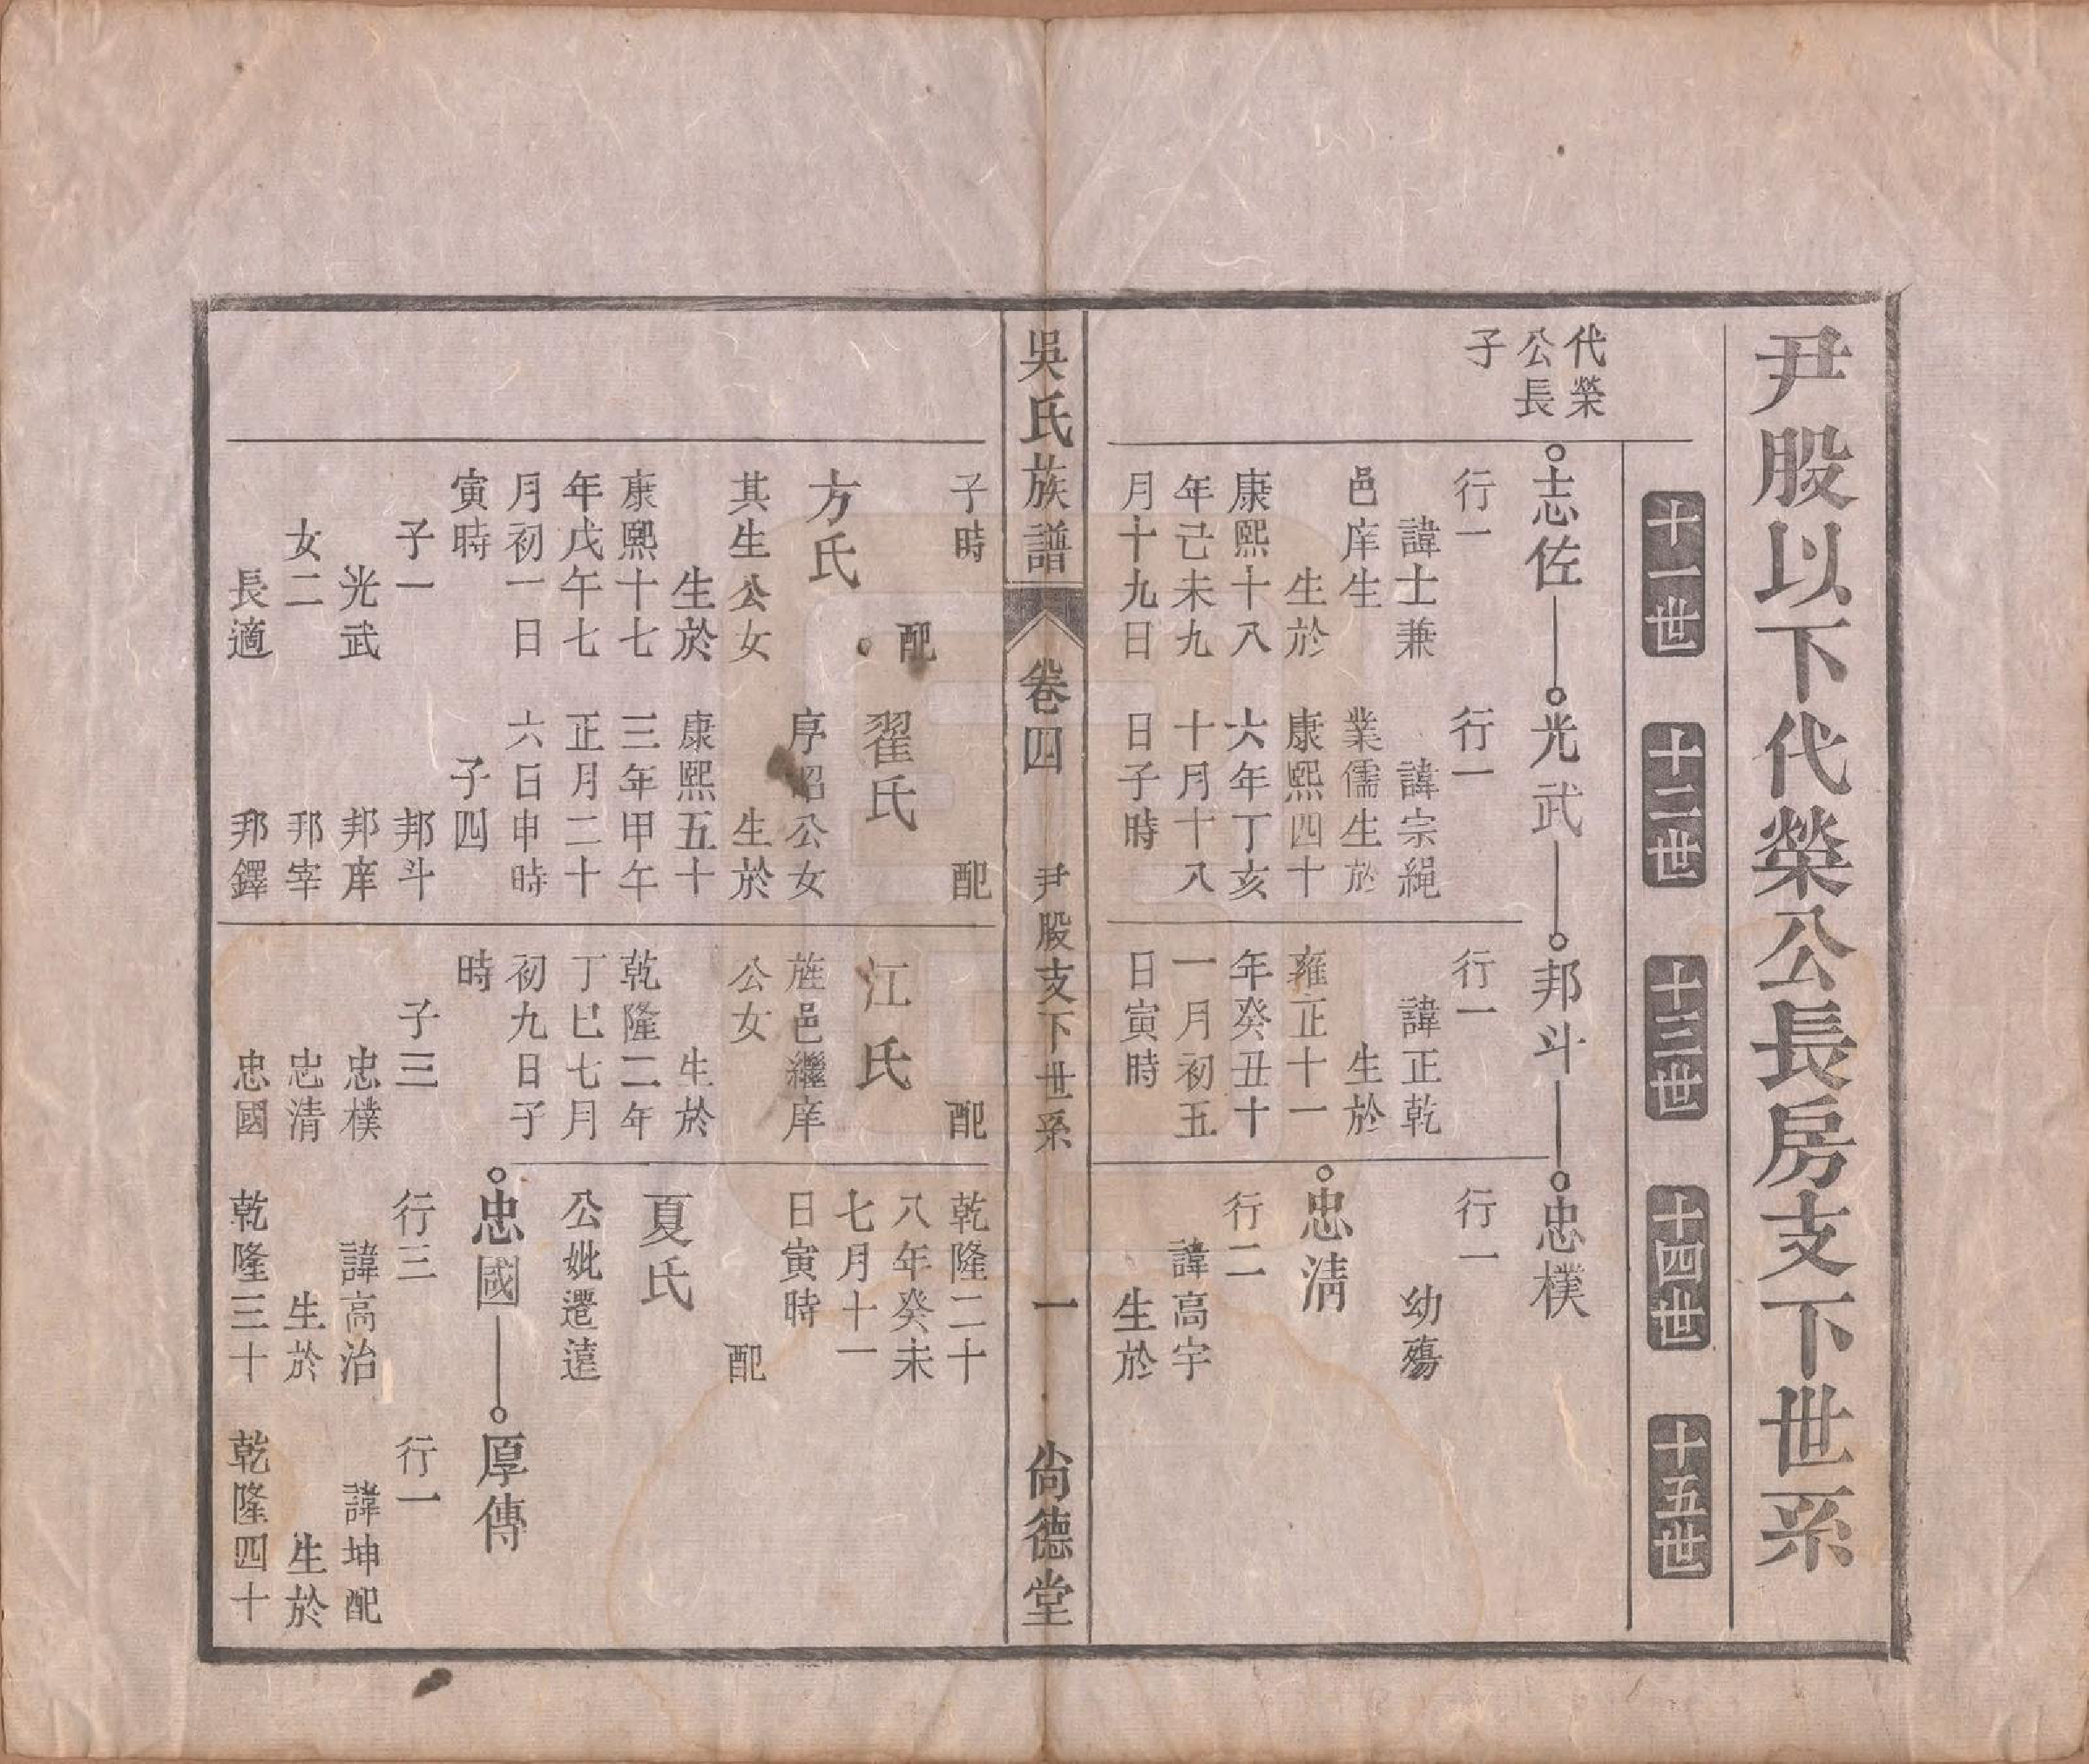 尹股以下代榮公長房支下世系
十一世
十二世
十三世
十四世
十五世
代榮
公長
子
志佐
行一
諱士兼
邑庠生
生於
康熙十八
年己未九
月十九日
光武
行一
諱宗繩
業儒生於
康熙四十
六年丁亥
十月十八
日子時
邦斗
行一
諱正乾
生於
雍正十一
年癸丑十
一月初五
日寅時
忠樸
行一
幼殤
忠清
行二
諱高宇
生於
吳氏族譜
卷四
尹股支下世系
一
尙德堂
子時
配
方氏
其生公女
生於
康熙十七
年戊午七
月初一日
寅時
子一
光武
女二
長適
配
翟氏
序昭公女
生於
康熙五十
三年甲午
正月二十
六日申時
子四
邦斗
邦庠
邦宰
邦鐸
配
江氏
旌邑繼庠
公女
生於
乾隆二年
丁巳七月
初九日子
時
子三
忠樸
忠清
忠國
乾隆二十
八年癸未
七月十一
日寅時
配
夏氏
公妣遷遠
忠國
行三
諱高治
生於
乾隆三十
厚傳
行一
諱坤配
生於
乾隆四十